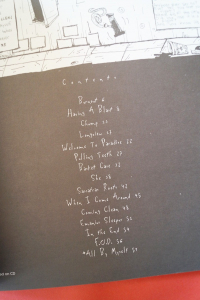 Contents
Burnout 4
Having A Blast 8
Chump 13
Longview 17
Welcome To Paradise 22
Pulling Teeth 27
Basket Case 32
She 38
Sassafras Roots 42
When I Come Around 45
Coming Clean 48
Emenius Sleepus 51
In the End 54
F.O.D. 56
*All By Myself 59
on CD